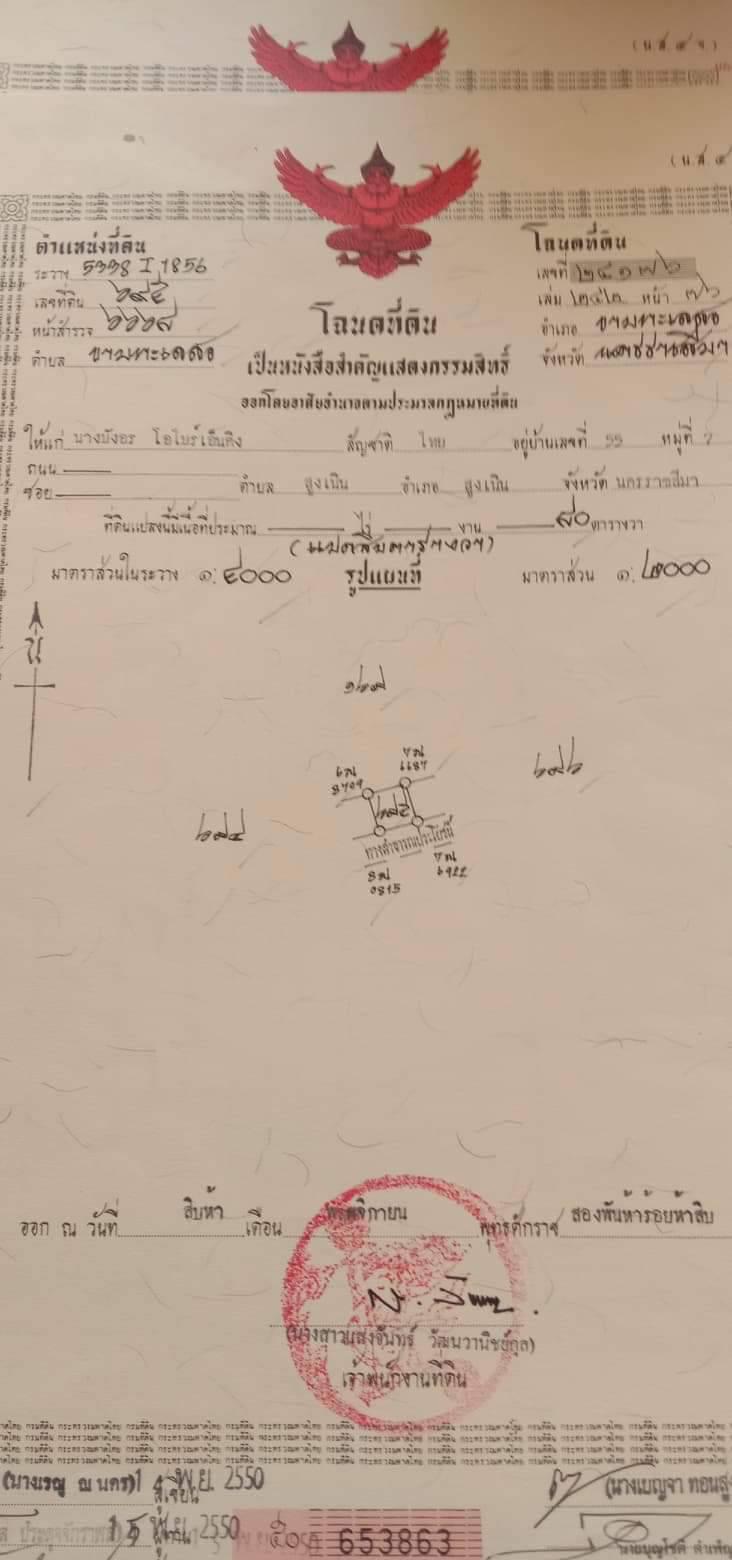 (น.ส. ๔ จ)
(น.ส. ๔
ตำแหน่งที่ดิน
ระวาง 5338 I 1856
เลขที่ดิน
หน้าสำรวจ
ตำบล ขามทะเลสอ
โฉนดที่ดิน
เลขที่ ๒๔๑๗๖
เล่ม ๒๔๒ หน้า ๗๖
อำเภอ ขามทะเลสอ
จังหวัด นครราชสีมา
โฉนดที่ดิน
เป็นหนังสือสำคัญแสดงกรรมสิทธิ์
ออกโดยอาศัยอำนาจตามประมวลกฎหมายที่ดิน
ให้แก่ นางบังอร โอไบร์เอ็นดิง สัญชาติ ไทย อยู่บ้านเลขที่ 55 หมู่ที่ 2
ถนน
ซอย ตำบล สูงเนิน อำเภอ สูงเนิน จังหวัด นครราชสีมา
ที่ดินแปลงนี้มีเนื้อที่ประมาณ ไร่ งาน ๘๐ ตารางวา
(แปดสิบตารางวา)
มาตราส่วนในระวาง ๑: ๔๐๐๐ รูปแผนที่ มาตราส่วน ๑: ๒๐๐๐
น
ทางสาธารณประโยชน์
0815
ออก ณ วันที่ สิบห้า เดือน พฤศจิกายน พุทธศักราช สองพันห้าร้อยห้าสิบ
(นางสาวแสงจันทร์ วัฒนวานิชย์กุล)
เจ้าพนักงานที่ดิน
(นางเรณู ณ นคร) พ.ย. 2550
ผู้เขียน
(นางเบญจา
พ.ย. 2550
653863